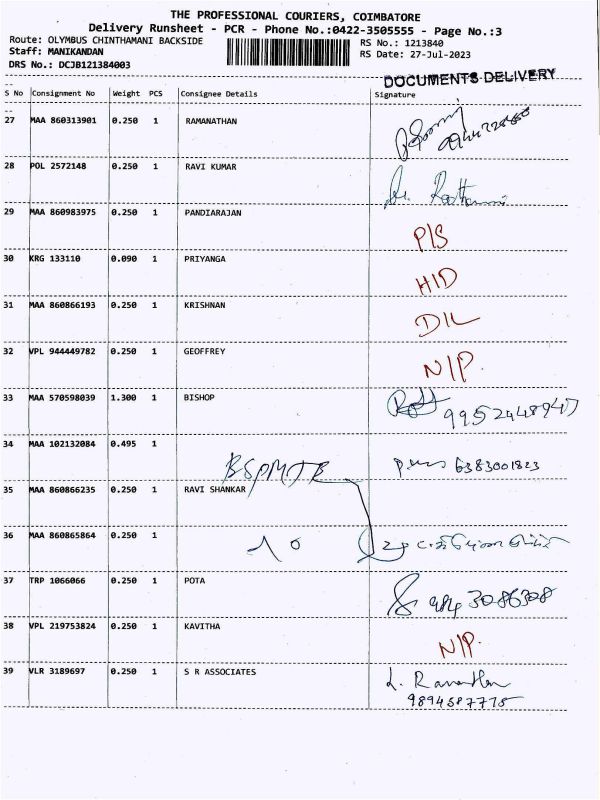 THE PROFESSIONAL COURIERS, COIMBATORE
Delivery Runsheet - PCR - Phone No.:0422-3505555 - Page No.:3
Route: OLYMBUS CHINTHAMANI BACKSIDE
RS No.: 1213840
Staff: MANIKANDAN
RS Date: 27-Jul-2023
DRS No.: DCJB121384003
DOCUMENTS DELIVERY
S No Consignment No Weight PCS Consignee Details Signature
27 MAA 860313901 0.250 1 RAMANATHAN
28 POL 2572148 0.250 1 RAVI KUMAR
29 MAA 860983975 0.250 1 PANDIARAJAN
P/S
30 KRG 133110 0.090 1 PRIYANGA
H/D
31 MAA 860866193 0.250 1 KRISHNAN
D/L
32 VPL 944449782 0.250 1 GEOFFREY
N/P.
33 MAA 570598039 1.300 1 BISHOP
9952448947
34 MAA 102132084 0.495 1
6383001823
35 MAA 860866235 0.250 1 RAVI SHANKAR
36 MAA 860865864 0.250 1
37 TRP 1066066 0.250 1 POTA
38 VPL 219753824 0.250 1 KAVITHA
N/P.
39 VLR 3189697 0.250 1 S R ASSOCIATES
9894587775